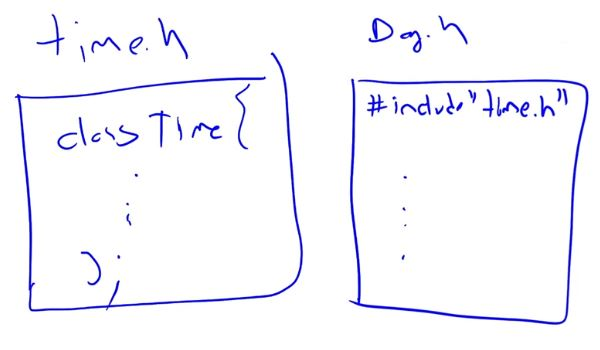 time.h
class Time {
.
:
};
Dog.h
#include "time.h"
.
.
.
.